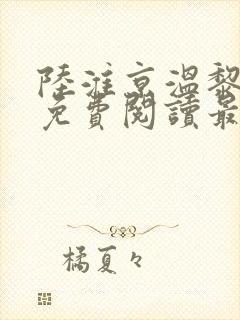 陸淮京溫黎
免費閱讀最
橘夏々